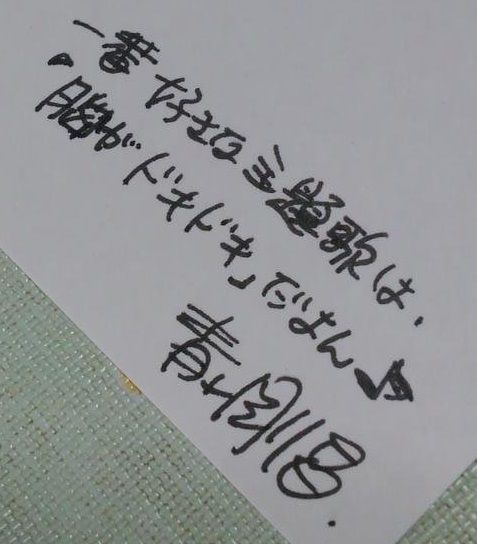 一番好きな主題歌は、
「胸がドキドキ」だよん♪
青山剛昌.